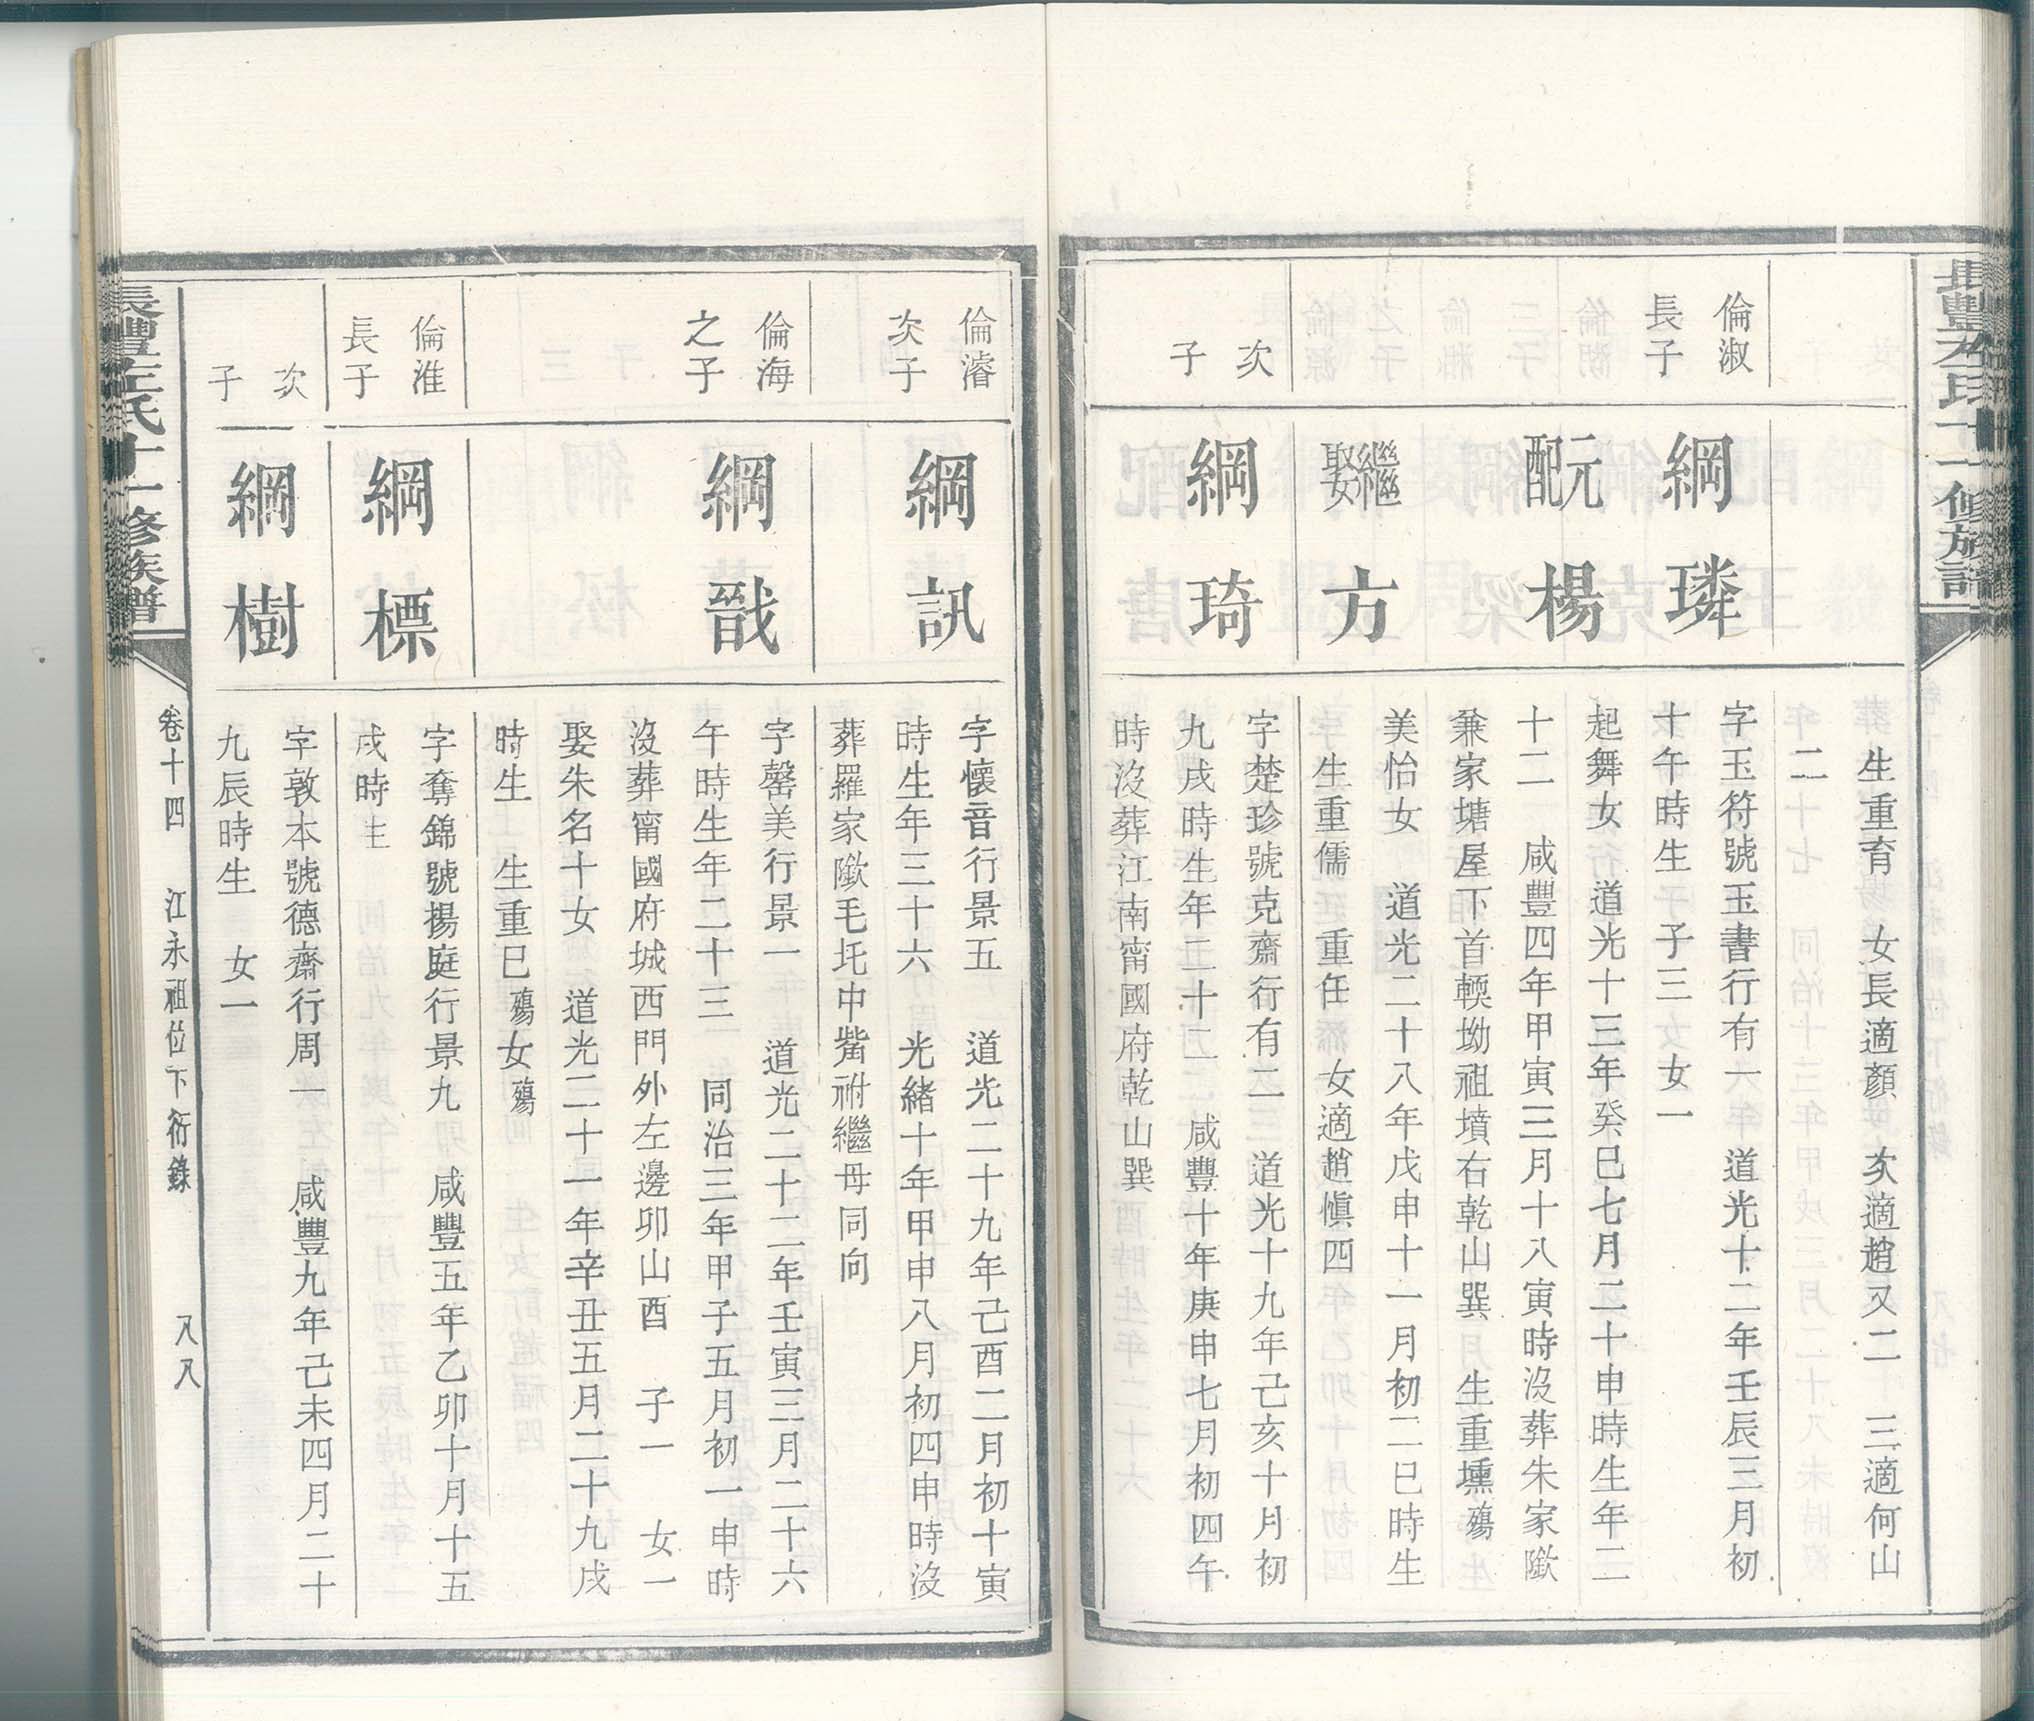 長豐左氏十一修族譜
生重育　女長適顏　次適趙又二　三適何山
二
倫淑長子
綱璘
字玉符號玉書行有一　道光十二年壬辰三月初
十午時生　子三　女一
元配楊
起舞女　道光十三年癸巳七月二十申時生年二
十二　咸豐四年甲寅三月十八寅時沒葬朱家墩
兼家塘屋下首輭坳祖墳右乾山巽　生重壎殤
繼娶方
美怡女　道光二十八年戊申十一月初二巳時生
生重儒　重任　女適趙愼四
次子
綱琦
字楚珍號克齋行有二　道光十九年己亥十月初
九戌時生年二十二　咸豐十年庚申七月初四午
時沒葬江南甯國府乾山巽
倫濬次子
綱訊
字懷音行景五　道光二十九年己酉二月初十寅
時生年三十六　光緒十年甲申八月初四申時沒
葬羅家墩毛圫中嘴祔繼母同向
倫海之子
綱戩
字罄美行景一　道光二十二年壬寅三月二十六
午時生年二十三　同治三年甲子五月初一申時
沒葬甯國府城西門外左邊卯山酉　子一　女一
娶朱名十女　道光二十一年辛丑五月二十九戌
時生　生重巳殤女殤
倫淮長子
綱標
字奪錦號揚庭行景九　咸豐五年乙卯十月十五
戌時生
次子
綱樹
字敦本號德齋行周一　咸豐九年己未四月二十
九辰時生　女一
長豐左氏十一修族譜
卷十四　江永祖位下衍錄　八八